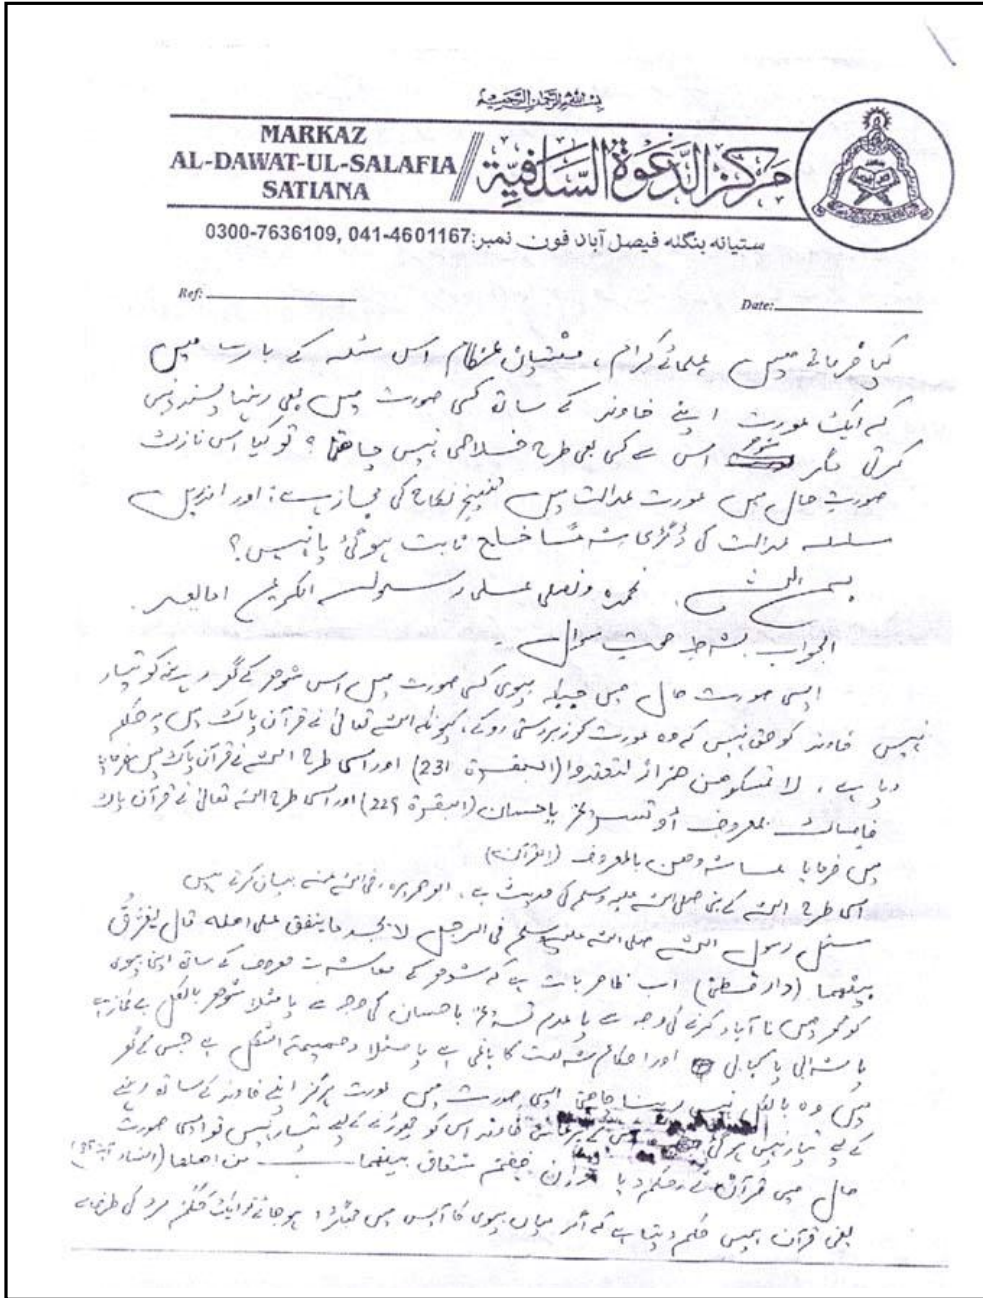 بسم اللہ الرحمن الرحیم
MARKAZ
AL-DAWAT-UL-SALAFIA
SATIANA
مركز الدعوة السلفية
ستیانہ بنگلہ فیصل آباد فون نمبر: 0300-7636109, 041-4601167
Ref:
Date:
کیا فرماتے ہیں علمائے کرام، مفتیان عظام اس مسئلہ کے بارے میں
کہ ایک عورت اپنے خاوند کے ساتھ کسی صورت میں بھی رہنا پسند نہیں
کرتی مگر اس سے کسی بھی طرح خلاصی نہیں چاہتا؟ تو کیا اس نازک
صورت حال میں عورت عدالت میں تنسیخ نکاح کی مجاز ہے؛ اور ازیں
سلسلہ عدالت کی ڈگری شرعا خلع ثابت ہوگی یا نہیں؟
بسم اللہ نحمدہ ونصلی علی رسولہ الکریم اما بعد
الجواب بشرط صحت سوال
ایسی صورت حال میں جبکہ بیوی کسی صورت میں اس شوہر کے گھر رہنے کو تیار
نہیں خاوند کو حق نہیں کہ وہ عورت کو زبردستی روکے، کیونکہ اللہ تعالیٰ نے قرآن پاک میں یہ حکم
دیا ہے، لا تمسکوھن ضرارا لتعتدوا (البقرۃ 231) اور اسی طرح اللہ نے قرآن پاک میں فرمایا
فامساک بمعروف أو تسریح باحسان (البقرۃ 229) اور اسی طرح اللہ تعالیٰ نے قرآن پاک
میں فرمایا عاشروھن بالمعروف (القرآن)
اسی طرح اللہ کے نبی صلی اللہ علیہ وسلم کی حدیث ہے، ابو ھریرہ رضی اللہ عنہ بیان کرتے ہیں
سئل رسول اللہ صلی اللہ علیہ وسلم فی الرجل لا یجد ما ینفق علی اھلہ قال یفرق
بینھما (دارقطنی) اب ظاہر بات ہے کہ شوہر کے معاشرت معروف کے ساتھ اپنی بیوی
کو گھر میں نا آباد کرنے کی وجہ سے یا عدم تسریح باحسان کی وجہ سے یا مثلا شوہر بالکل بے نماز ہے
یا شرابی یا کبابی اور احکام شریعت کا باغی ہے یا مثلا دمیمۃ الشکل ہے جس کے گھر
میں وہ بالکل نہیں رہنا چاہتی ایسی صورت میں عورت ہرگز اپنے خاوند کے ساتھ رہنے
کے لیے تیار نہیں خاوند اس کو چھوڑنے کے لیے تیار نہیں تو ایسی صورت
حال میں قرآن نے حکم دیا وان خفتم شقاق بینھما من اھلھا (النساء آیۃ 35)
یعنی قرآن ہمیں حکم دیتا ہے کہ اگر میاں بیوی کا آپس میں جھگڑا ہو جائے تو ایک حکم مرد کی طرف سے